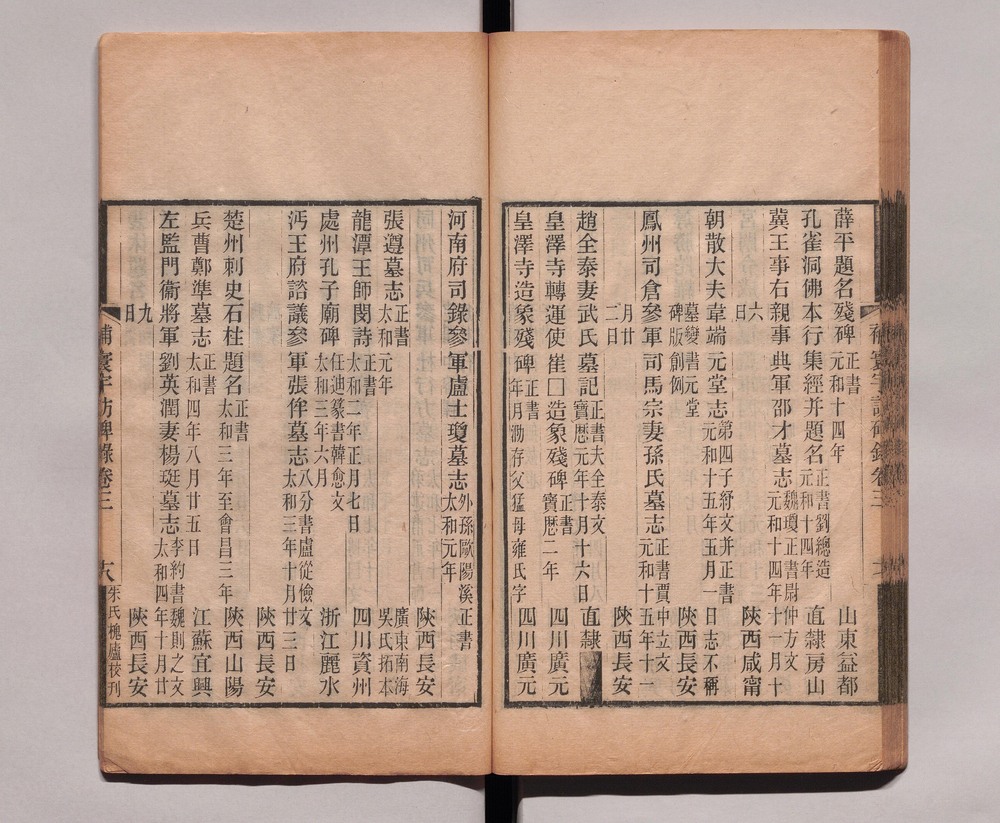 薛平題名殘碑 正書 元和十四年 山東益都
孔雀洞佛本行集經并題名 正書劉總造 元和十四年 直隸房山
冀王事右親事典軍邵才墓志 魏瓊正書尉仲方文 元和十四年十一月十
六日 陝西咸甯
朝散大夫韋端元堂志 第四子紓文并正書 元和十五年五月一日志不稱
墓變書元堂 碑版創例 陝西長安
鳳州司倉參軍司馬宗妻孫氏墓志 正書賈中立文 元和十五年十一
月廿二日 陝西長安
趙全泰妻武氏墓記 正書夫全泰文 寶歷元年十月十六日 直隸
皇澤寺轉運使崔囗造象殘碑 正書 寶歷二年 四川廣元
皇澤寺造象殘碑 正書 年月泐存父猛母雍氏字 四川廣元
河南府司錄參軍盧士瓊墓志 外孫歐陽溪正書 太和元年 陝西長安
張遵墓志 正書 太和元年 廣東南海吳氏拓本
龍潭王師閔詩 正書 太和二年正月七日 四川資州
處州孔子廟碑 任迪篆書韓愈文 太和三年六月 浙江麗水
沔王府諮議參軍張侔墓志 八分書盧從儉文 太和三年十月廿三日
陝西長安
楚州刺史石柱題名 正書 太和三年至會昌三年 陝西山陽
兵曹鄭準墓志 正書 太和四年八月廿五日 江蘇宜興
左監門衞將軍劉英潤妻楊珽墓志 李約書魏則之文 太和四年十月廿
九日 陝西長安
補寰宇訪碑錄卷三
朱氏槐廬校刊